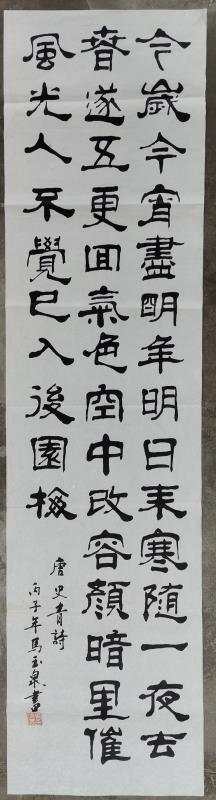 今歲今宵盡明年明日来寒隨一夜去
春遂五更回氣色空中改容顏暗里催
風光人不覺已入後園梅
唐史青詩
丙子年馬玉泉書